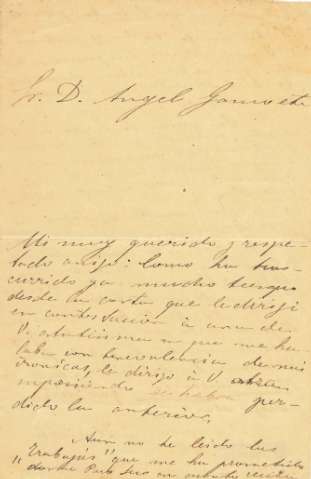 Sr. D. Angel Ganivet
Mi muy querido y respe-
tado amigo: Como ha tras-
currido ya mucho tiempo
desde la carta que le dirigí
en contestación à una de
V. atentísima en que me ha
blaba con benevolencia de mis
crónicas, le dirijo à V.
suponiendo per-
dido la anterior.
Aun no he leido los
"Trabajos" que me ha prometido